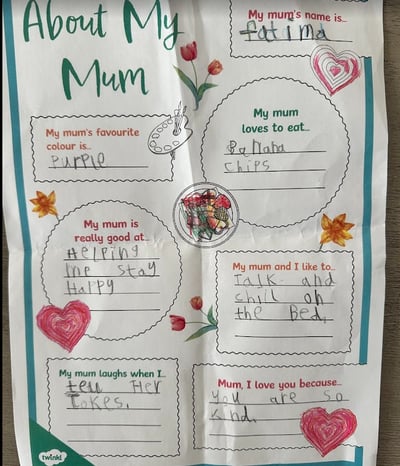 About My
Mum
My mum's name is...
fatima
My mum's favourite
colour is...
purple
My mum
loves to eat...
Banana
chips
My mum is
really good at...
Helping
me stay
Happy
My mum and I like to...
Talk and
chill on
the Bed.
My mum laughs when I...
tell Her
Jokes.
Mum, I love you because...
you are so
kind.
twinkl